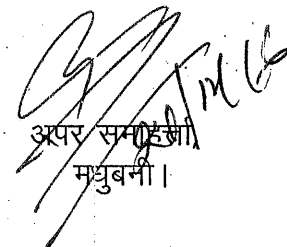 अपर समाहर्त्ता,
मधुबनी।